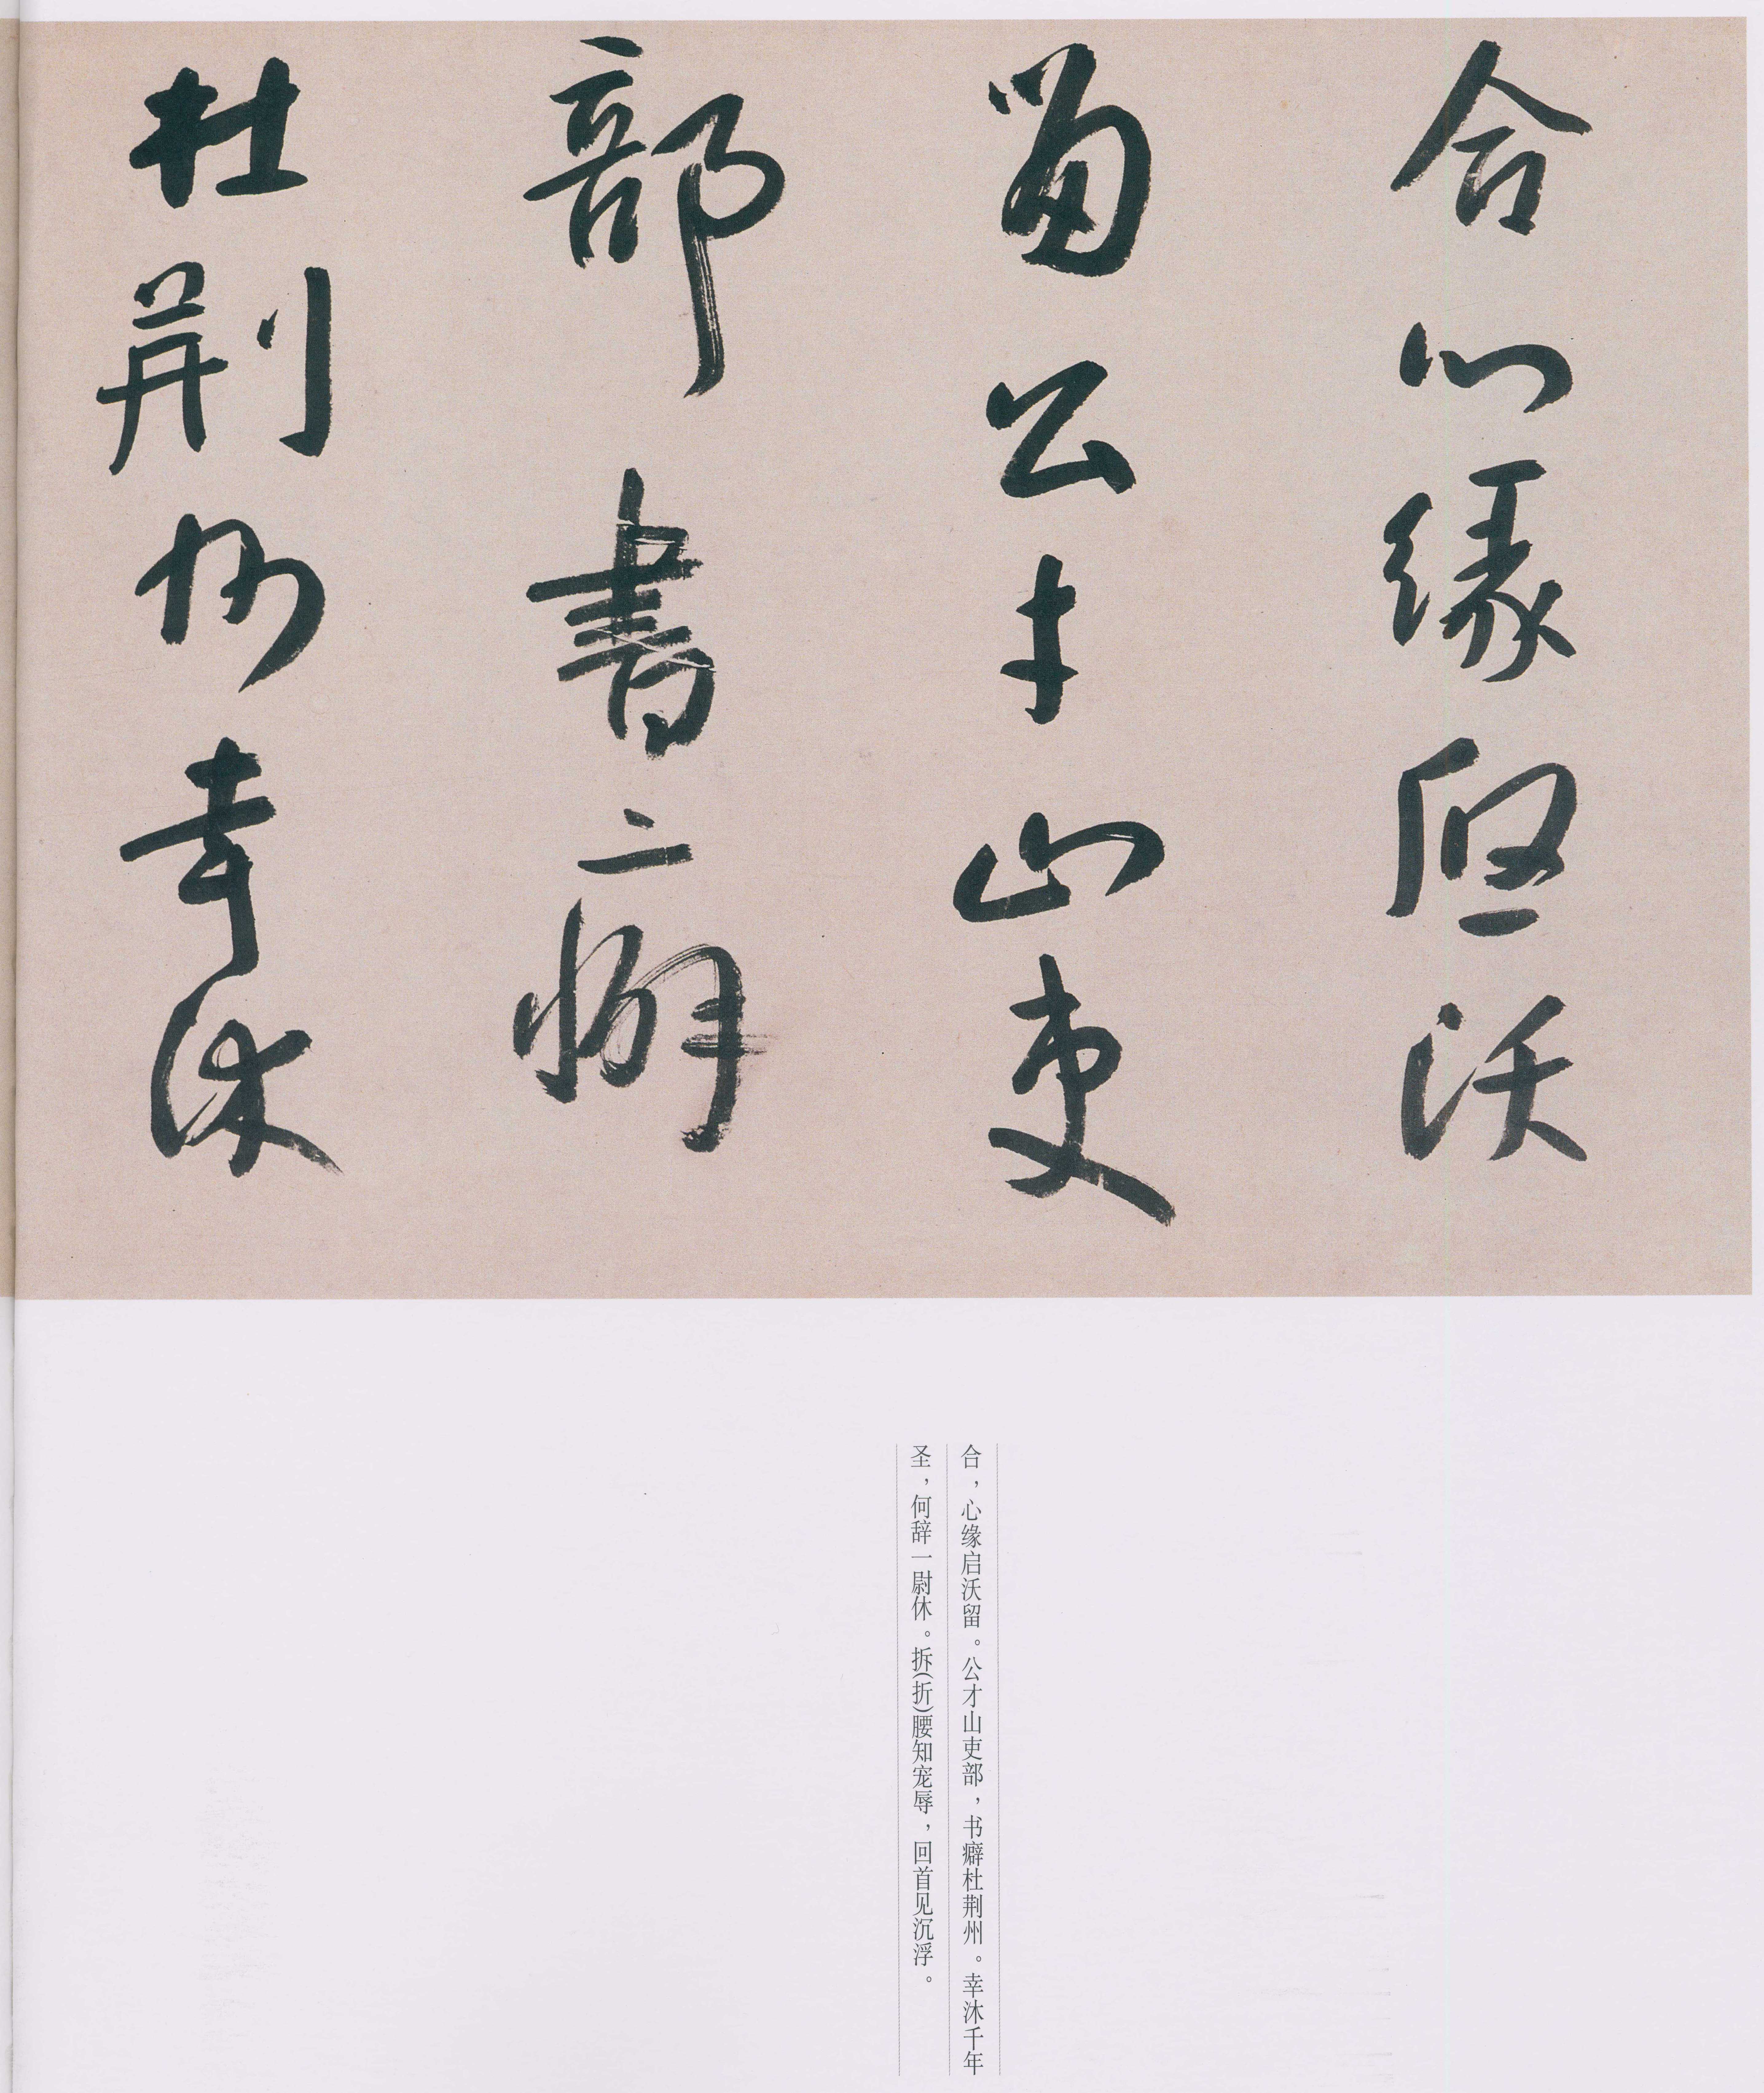 合心缘启沃
留公才山吏
部書癖
杜荆州幸沐
合，心缘启沃留。公才山吏部，书癖杜荆州。幸沐千年
圣，何辞一尉休。拆（折）腰知宠辱，回首见沉浮。